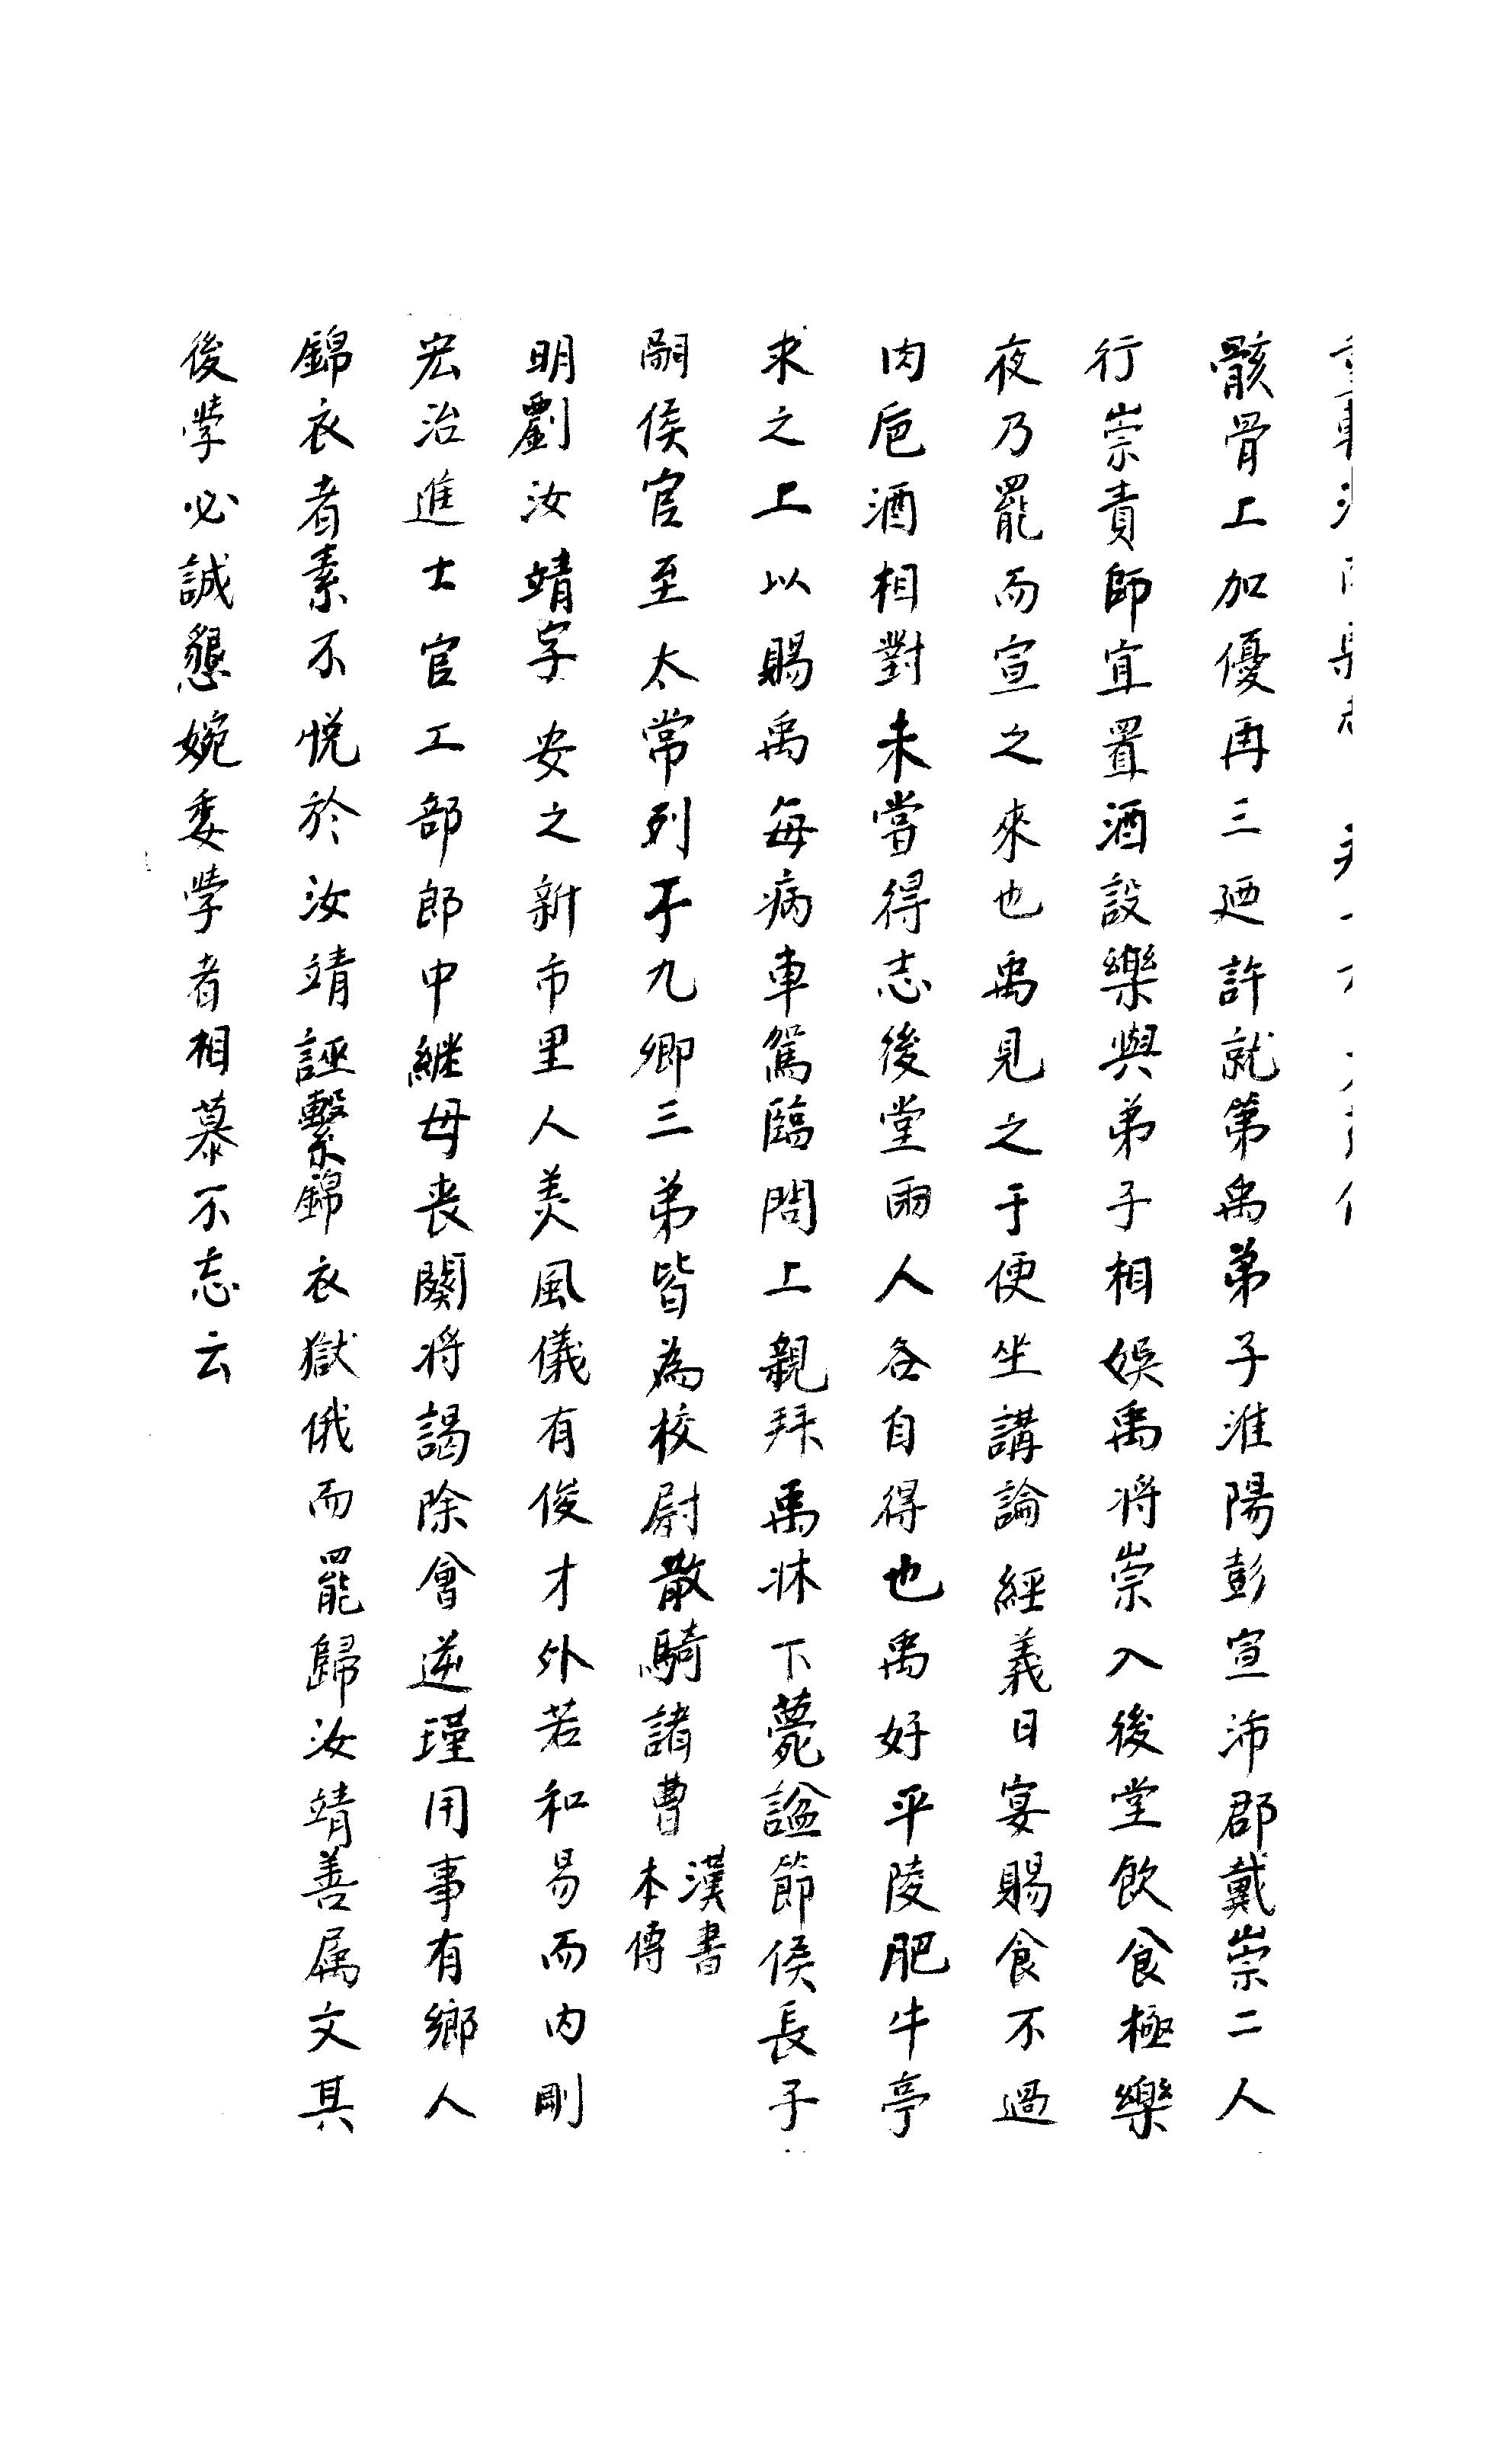 骸骨上加優再三廼許就第禹弟子淮陽彭宣沛郡戴崇二人
行崇責師宜置酒設樂與弟子相娛禹將崇入後堂飲食極樂
夜乃罷而宣之來也禹見之于便坐講論經義日宴賜食不過
肉巵酒相對未嘗得志後堂兩人各自得也禹好平陵肥牛亭
求之上以賜禹每病車駕臨問上親拜禹牀下薨諡節侯長子
嗣侯官至太常列于九卿三弟皆為校尉散騎諸曹漢書本傳
明劉汝靖字安之新市里人美風儀有俊才外若和易而內剛
宏治進士官工部郎中繼母喪闋將謁除會逆瑾用事有鄉人
錦衣者素不悅於汝靖誣繫錦衣獄俄而罷歸汝靖善属文其
後學必誠懇婉委學者相慕不忘云